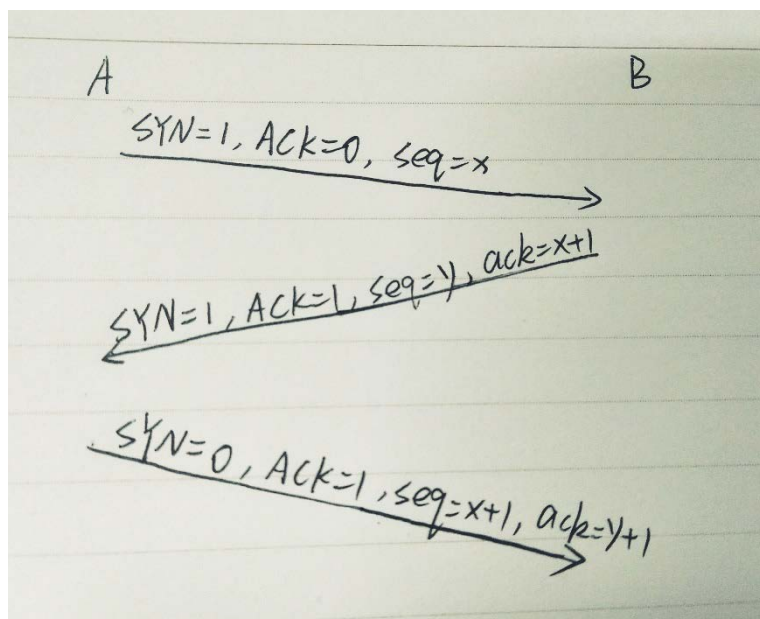 A B
SYN=1, ACK=0, seq=x
SYN=1, ACK=1, seq=y, ack=x+1
SYN=0, ACK=1, seq=x+1, ack=y+1